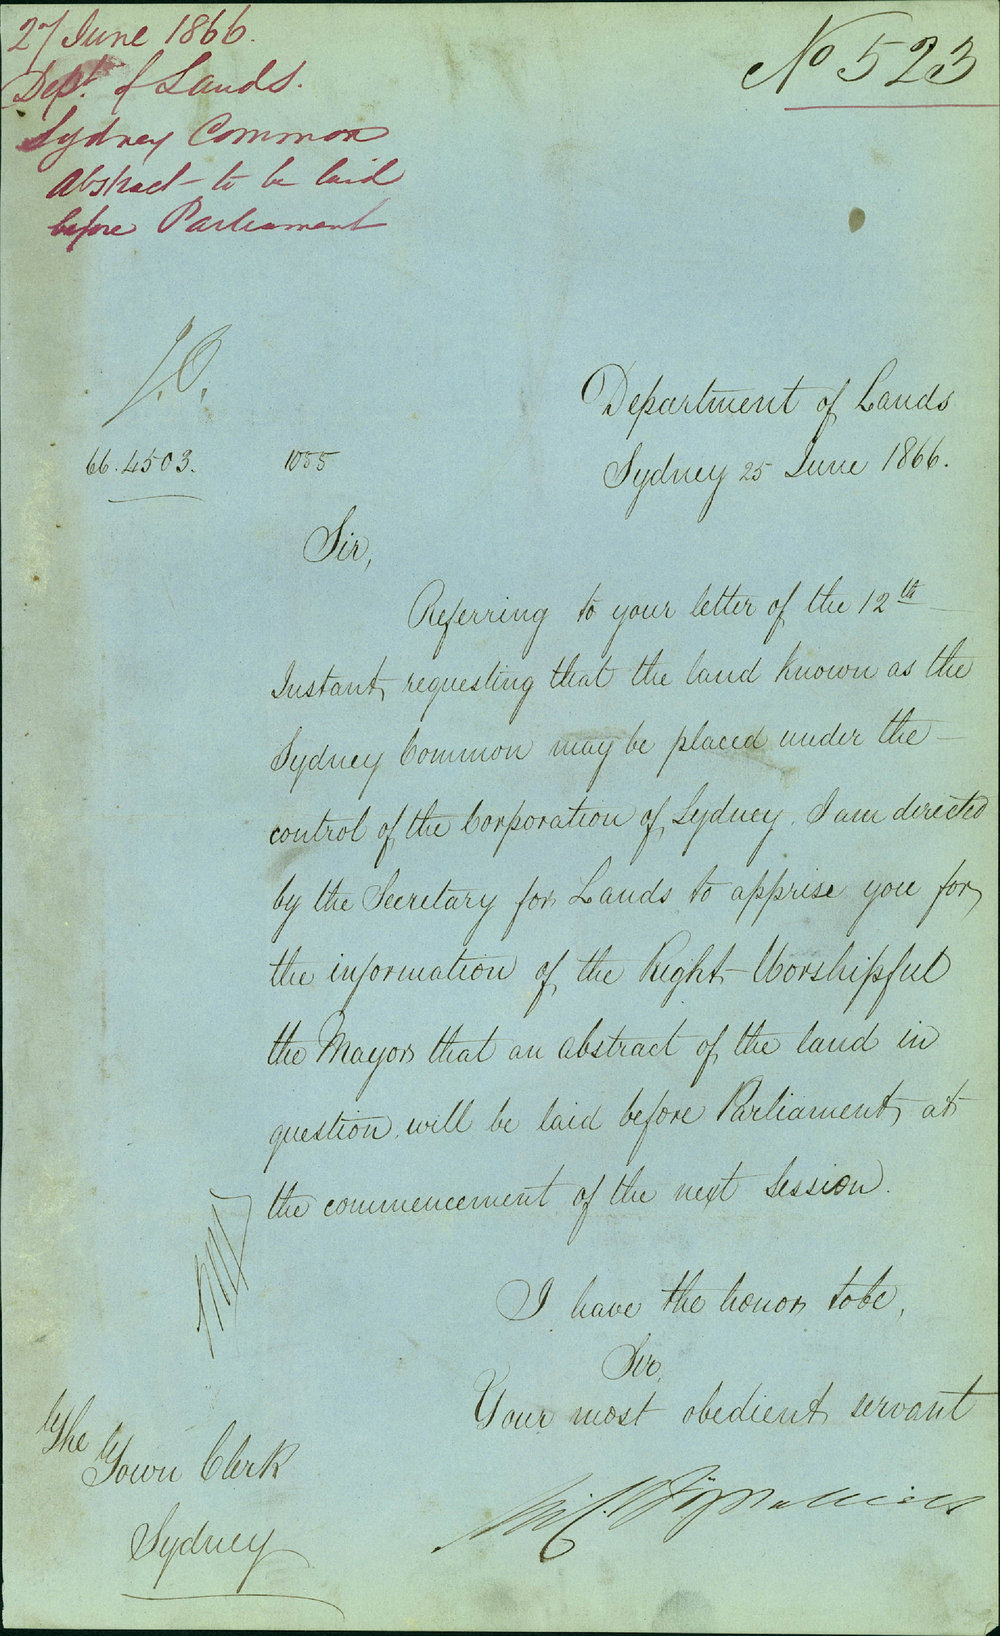 27 June 1866.
Dept. of Lands.
Sydney Common
Abstract to be laid
before Parliament
No 523
J.O.
Department of Lands
Sydney 25 June 1866.
66.4503. 1055
Sir,
Referring to your letter of the 12th
Instant, requesting that the land known as the
Sydney Common may be placed under the
control of the Corporation of Sydney, I am directed
by the Secretary for Lands to apprise you for
the information of the Right Worshipful
the Mayor that an abstract of the land in
question will be laid before Parliament, at
the commencement of the next Session.
I have the honor to be,
Sir,
Your most obedient servant
The Town Clerk
Sydney